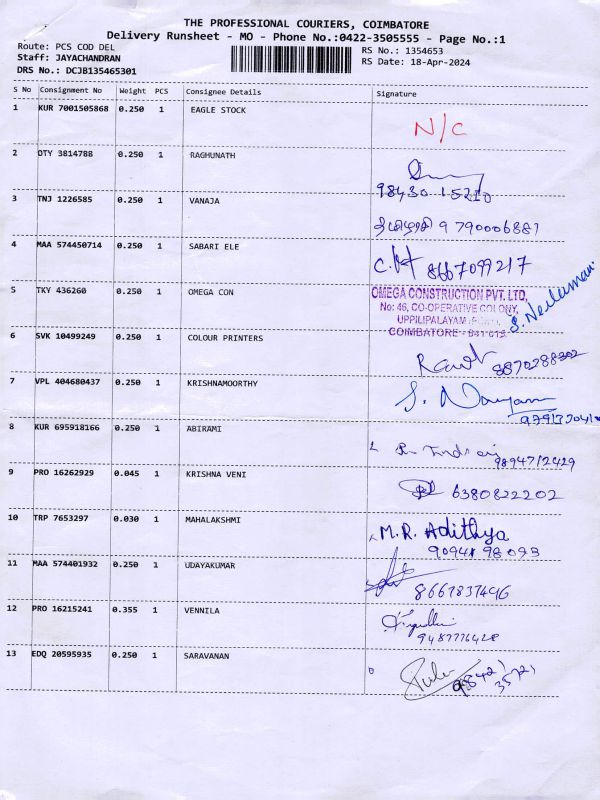 THE PROFESSIONAL COURIERS, COIMBATORE
Delivery Runsheet - MO - Phone No.:0422-3505555 - Page No.:1
Route: PCS COD DEL
RS No.: 1354653
Staff: JAYACHANDRAN
RS Date: 18-Apr-2024
DRS No.: DCJB135465301
S No Consignment No Weight PCS Consignee Details Signature
1 KUR 7001505868 0.250 1 EAGLE STOCK N/C
2 OTY 3814788 0.250 1 RAGHUNATH
98430 15210
3 TNJ 1226585 0.250 1 VANAJA
9790006881
4 MAA 574450714 0.250 1 SABARI ELE
8667099217
5 TKY 436260 0.250 1 OMEGA CON OMEGA CONSTRUCTION PVT. LTD,
No: 46, CO-OPERATIVE COLONY,
UPPILIPALAYAM
COIMBATORE - 641 015.
6 SVK 10499249 0.250 1 COLOUR PRINTERS
8870288302
7 VPL 404680437 0.250 1 KRISHNAMOORTHY
S. Narayanan
8 KUR 695918166 0.250 1 ABIRAMI
9894712429
9 PRO 16262929 0.045 1 KRISHNA VENI 6380822202
10 TRP 7653297 0.030 1 MAHALAKSHMI M.R. Adithya
90941 98093
11 MAA 574401932 0.250 1 UDAYAKUMAR
8667837446
12 PRO 16215241 0.355 1 VENNILA
9487776428
13 EDQ 20595935 0.250 1 SARAVANAN
98421
35721